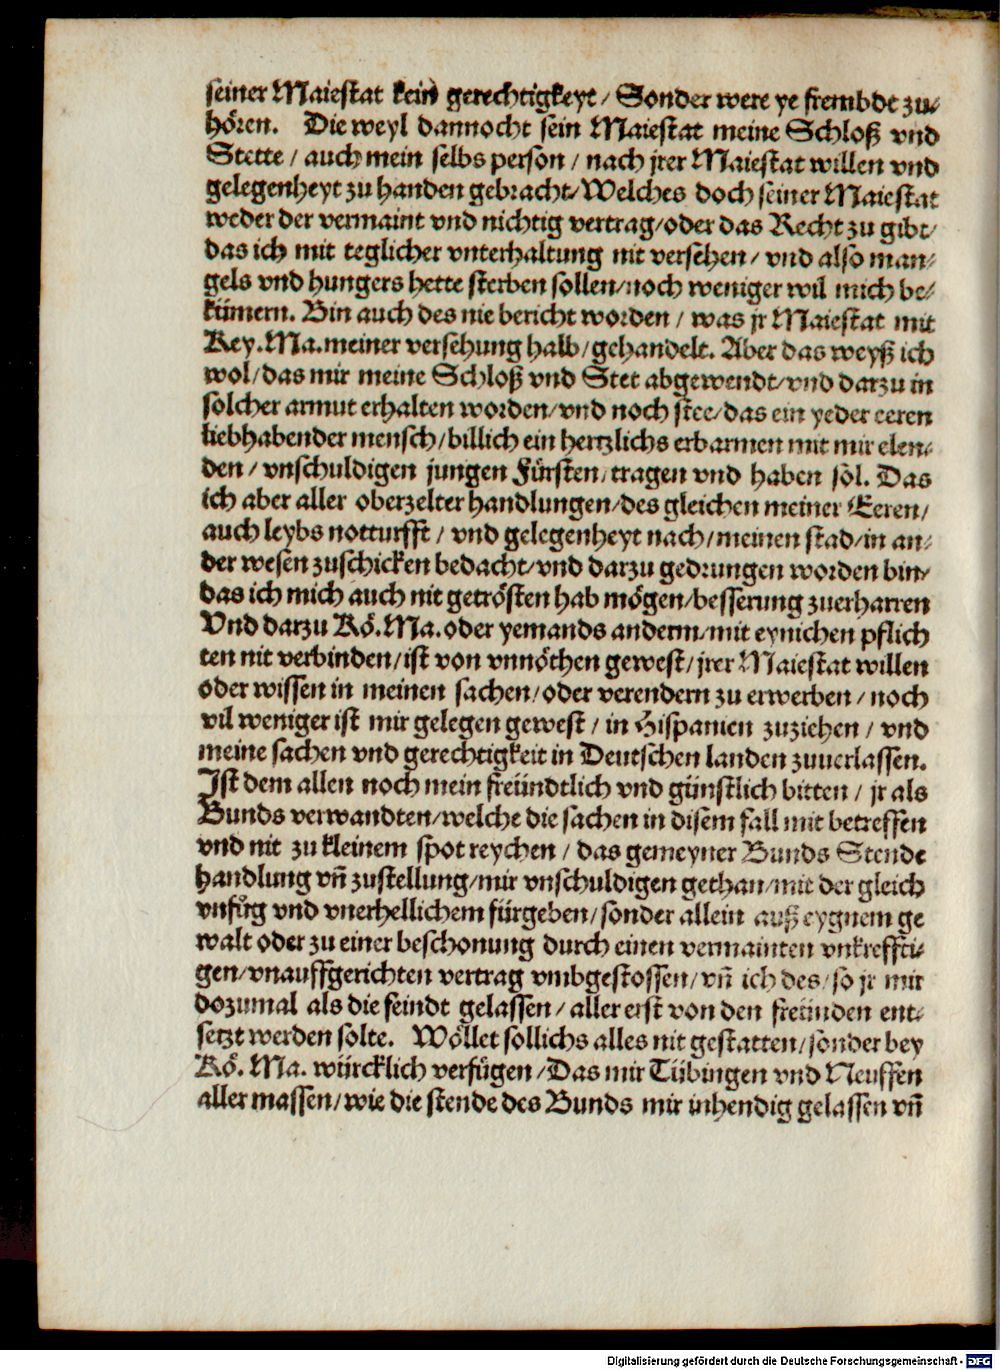 seiner Maiestat kein gerechtigkeyt / Sonder were ye frembdt zu⸗
hören. Die weyl dannocht sein Maiestat meine Schloß vnd
Stette / auch mein selbs person / nach jrer Maiestat willen vnd
gelegenheyt zu handen gebracht / Welches doch seiner Maiestat
weder der vermaint vnd nichtig vertrag / oder das Recht zu gibt /
das ich mit teglicher vnterhaltung nit versehen / vnd also man⸗
gels vnd hungers hette sterben sollen / noch weniger wil mich be⸗
kümern. Bin auch des nie bericht worden / was jr Maiestat mit
Key. Ma. meiner versehung halb / gehandelt. Aber das weyß ich
wol / das mir meine Schloß vnd Stet abgewendt / vnd darzu in
solcher armut erhalten worden / vnd noch stee / das ein yeder eeren
liebhabender mensch / billich ein hertzlichs erbarmen mit mir elen⸗
den / vnschuldigen jungen Fürsten / tragen vnd haben sol. Das
ich aber aller oberzelter handlungen / des gleichen meiner Eeren /
auch leybs notturfft / vnd gelegenheyt nach / meinen stad / in an⸗
der wesen zuschicken bedacht / vnd darzu gedrungen worden bin /
das ich mich auch nit getrösten hab mögen / besserung zuerharren
Vnd darzu Kö. Ma. oder yemands anderm / mit eynichen pflich
ten nit verbinden / ist von vnnöthen gewest / jrer Maiestat willen
oder wissen in meinen sachen / oder verendern zu erwerben / noch
vil weniger ist mir gelegen gewest / in Hispanien zuziehen / vnd
meine sachen vnd gerechtigkeit in Deutschen landen zuuerlassen.
Ist dem allen noch mein freündtlich vnd günstlich bitten / jr als
Bunds verwandten / welche die sachen in disem fall mit betreffen
vnd nit zu kleinem spot reychen / das gemeyner Bunds Stende
handlung vñ zustellung / mir vnschuldigen gethan / mit der gleich
vnfůg vnd vnerhellichem fürgeben / sonder allein auß eygnem ge
walt oder zu einer beschonung durch einen vermainten vnkreffti⸗
gen / vnauffgerichten vertrag vmbgestossen / vñ ich des / so jr mir
dozumal als die feindt gelassen / aller erst von den freünden ent⸗
setzt werden solte. Wöllet sollichs alles nit gestatten / sonder bey
Kö. Ma. würcklich verfügen / Das mir Tübingen vnd Neuffen
aller massen / wie die stende des Bunds mir inhendig gelassen vñ
Digitalisierung gefördert durch die Deutsche Forschungsgemeinschaft - DFG